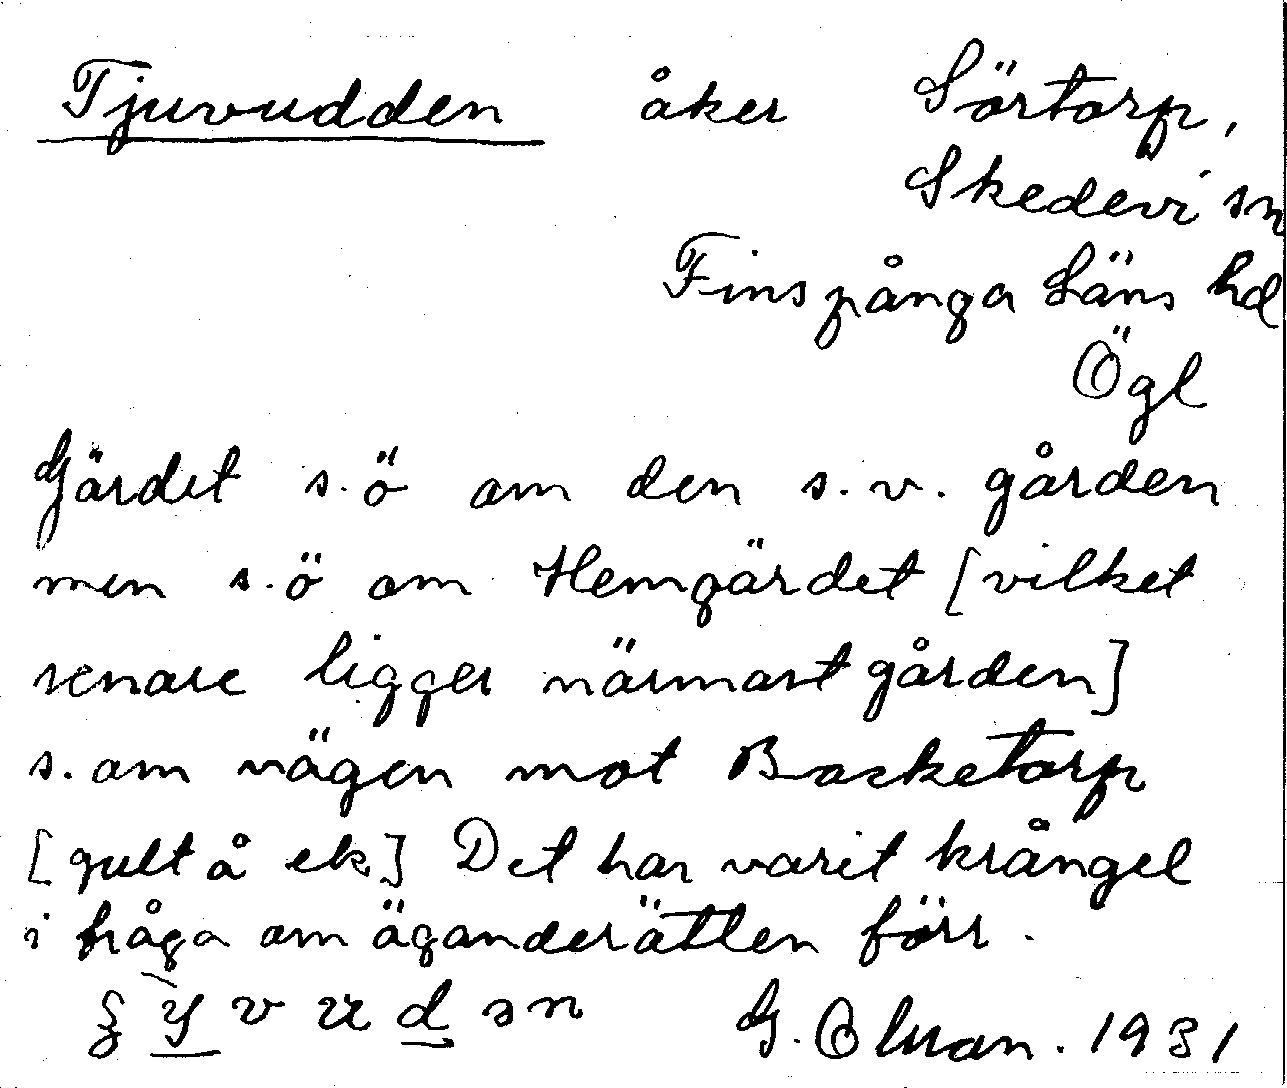 Tjuvudden åker Sörtorp,
Skedevi sn
Finspånga Läns hd
Ögl
Gärdet s.ö om den s.v. gården
men s.ö om Hemgärdet [vilket
senare ligger närmast gården]
s. om vägen mot Backetorp
[gult å ek] Det har varit krångel
i fråga om äganderätten förr.
G. 1931